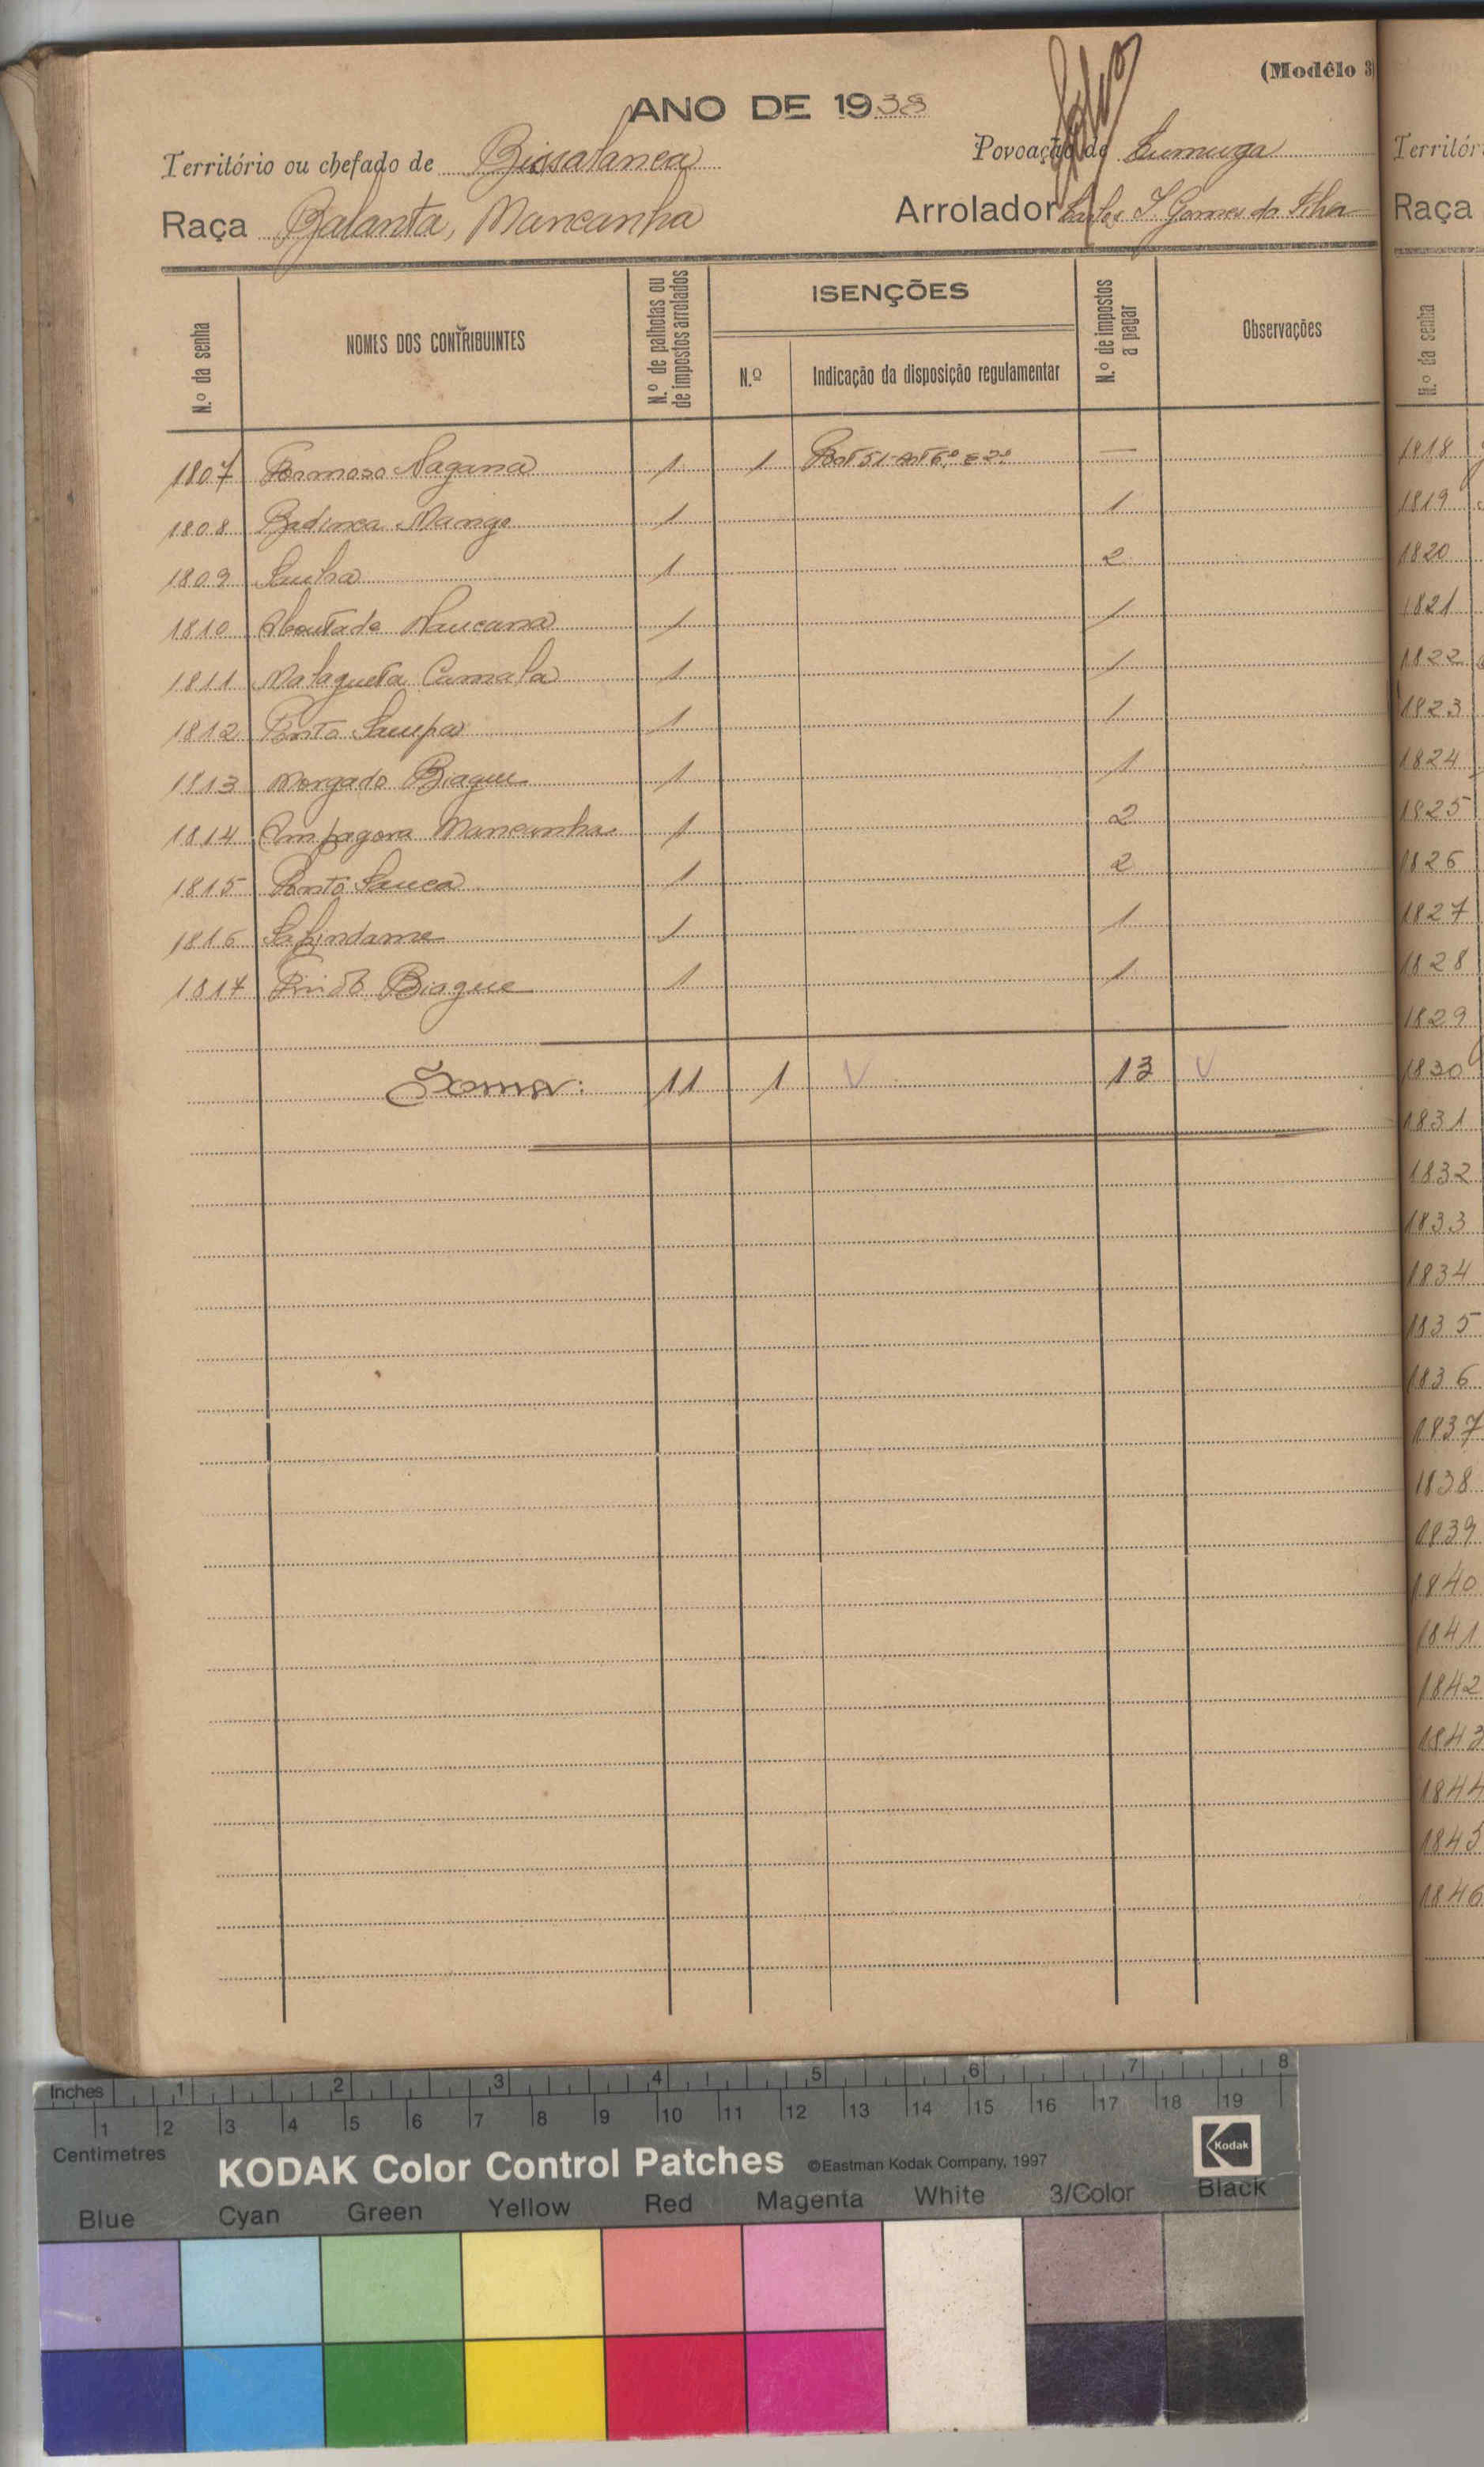 (Modêlo 3)
ANO DE 1938
Território ou chefado de Bissalanca Povoação de
Raça Balanta, Mancanha Arrolador Gomes da
N.º da senha NOMES DOS CONTRIBUINTES N.º de palhotas ou de impostos arrolados ISENÇÕES N.º Indicação da disposição regulamentar N.º de impostos a pagar Observações
1807 Formoso Nagana 1 1 —
1808 Badinca Mango 1 1
1809 1 2
1810 1 1
1811 Malagueta Camala 1 1
1812 Ponto Saupa 1 1
1813 Morgado Biague 1 1
1814 Mancanha 1 2
1815 Ponto Sanca 1 2
1816 1 1
1817 Biague 1 1
Soma: 11 1 13
Territór
Raça
N.º da senha
1818
1819
1820
1821
1822
1823
1824
1825
1826
1827
1828
1829
1830
1831
1832
1833
1834
1835
1836
1837
1838
1839
1840
1841
1842
1843
1844
1845
1846
Inches 1 2 3 4 5 6 7 8
1 2 3 4 5 6 7 8 9 10 11 12 13 14 15 16 17 18 19
Centimetres
KODAK Color Control Patches ©Eastman Kodak Company, 1997 Kodak
Blue Cyan Green Yellow Red Magenta White 3/Color Black